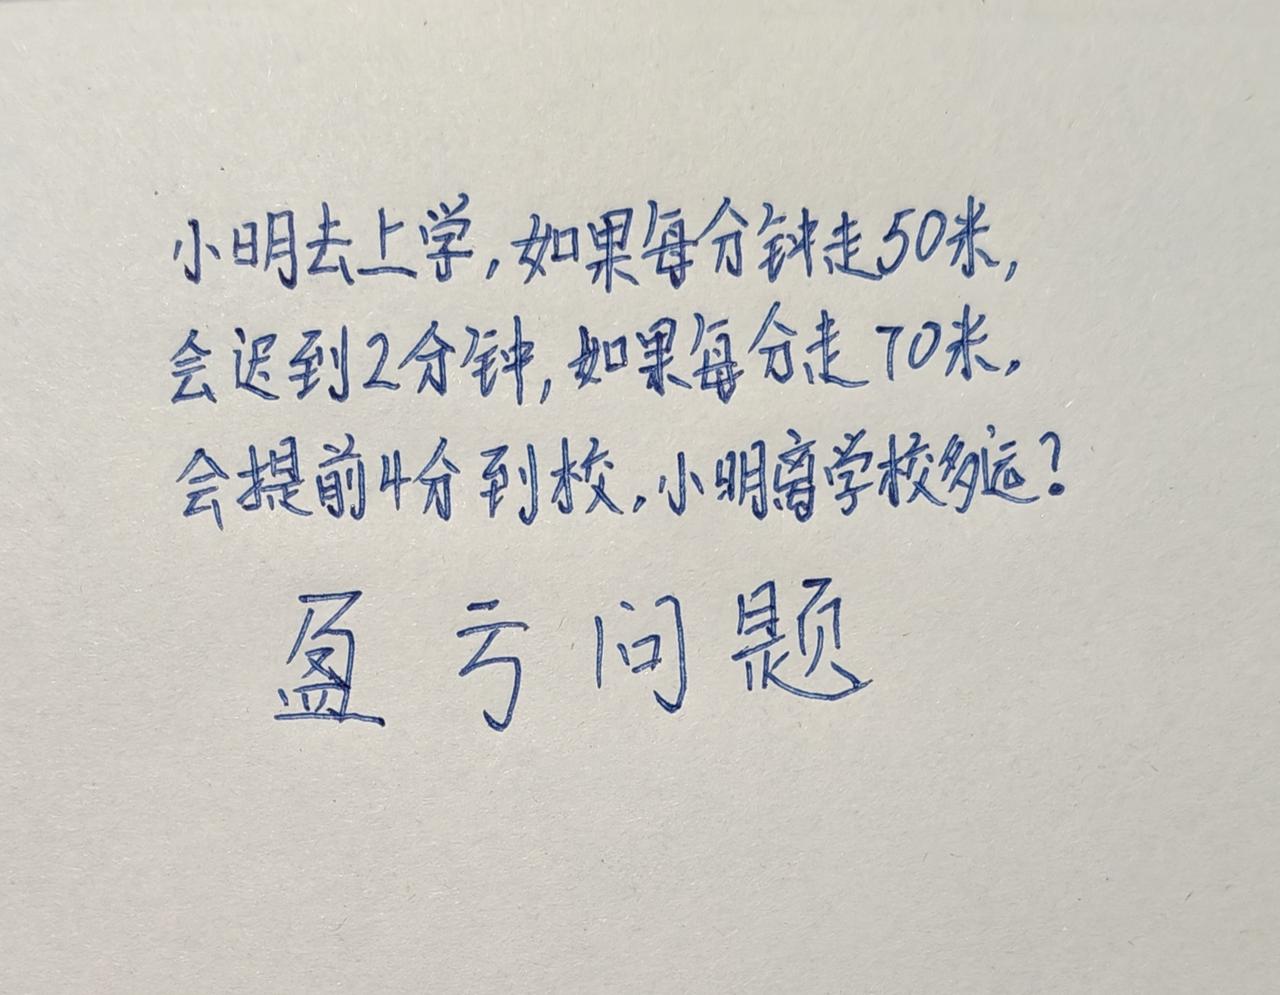 小明去上学,如果每分钟走50米,
会迟到2分钟,如果每分走70米.
会提前4分到校.小明离学校多远?
盈亏问题